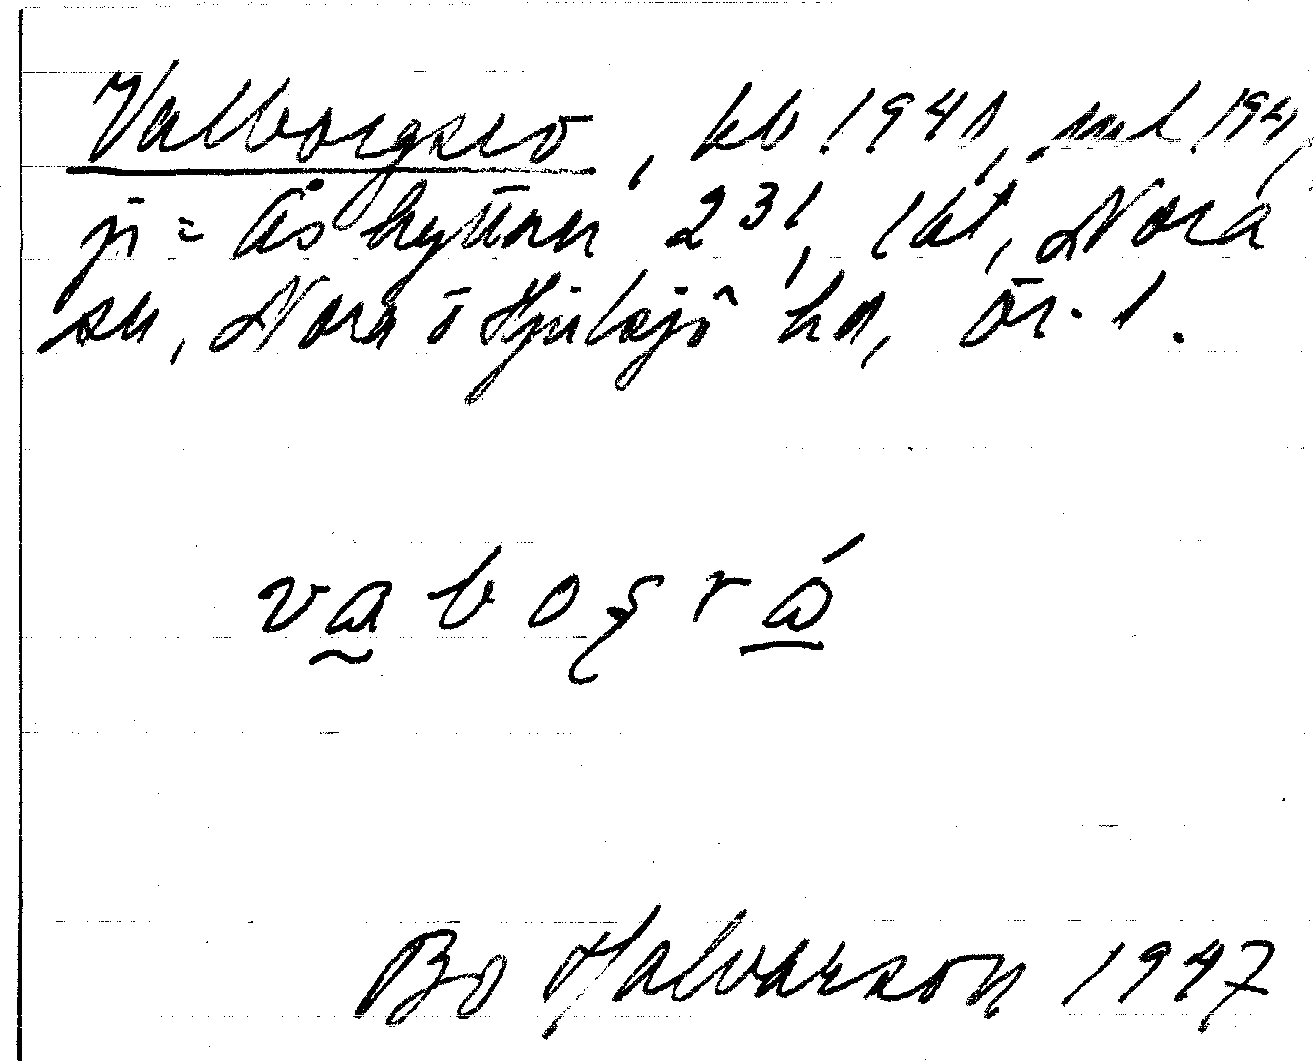 Valborgsrö, kb 1940, ml 194
ji = Åshyttan 231, lät, Nora
sn, Nora o Hjulsjö hd, Ör. l.
vabosrå
Bo Halvarson 1947